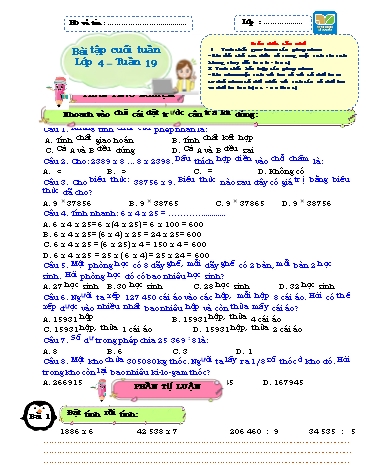 Họ và tên :
Lớp :
Bài tập cuối tuần
Lớp 4 – Tuần 19
Khoanh vào chữ cái đặt trước câu trả lời đúng:
Câu 1. tính chất của phép nhân là:
A. Tính chất giao hoán B. Tính chất kết hợp
C. Cả A và B đều đúng D. Cả A và B đều sai
Câu 2. Cho: 2389 x 8 ... 8 x 2398. Dấu thích hợp điền vào chỗ chấm là:
A. < B. > C. = D. Không có
Câu 3. Cho biểu thức: 38756 x 9. Biểu thức nào sau đây có giá trị bằng biểu
thức đã cho?
A. 9 × 37856 B. 9 × 38765 C. 9 × 37865 D. 9 × 38756
Câu 4. Tính nhanh: 6 x 4 x 25 = ……………......
A. 6 x 4 x 25 = 6 x (4 x 25) = 6 x 100 = 600
B. 6 x 4 x 25 = (6 x 4) x 25 = 24 x 25 = 600
C. 6 x 4 x 25 = (6 x 25) x 4 = 150 x 4 = 600
D. 6 x 4 x 25 = 25 x (6 x 4) = 25 x 24 = 600
Câu 5. Một phòng học có 8 dãy ghế, mỗi dãy ghế có 2 bàn, mỗi bàn 2 học
sinh. Hỏi phòng học đó có bao nhiêu học sinh?
A. 27 học sinh B. 30 học sinh C. 28 học sinh D. 32 học sinh
Câu 6. Người ta xếp 127 450 cái áo vào các hộp, mỗi hộp 8 cái áo. Hỏi có thể
xếp được vào nhiều nhất bao nhiêu hộp và còn thừa mấy cái áo?
A. 15931 hộp B. 15931 hộp, thừa 4 cái áo
C. 15931 hộp, thừa 1 cái áo D. 15931 hộp, thừa 2 cái áo
Câu 7. Số dư trong phép chia 25 369 : 8 là:
A. 8 B. 6 C. 3 D. 1
Câu 8. Một kho chứa 305080kg thóc. Người ta lấy ra 1/8 số thóc ở kho đó. Hỏi
trong kho còn lại bao nhiêu ki-lo-gam thóc?
A. 266915 D. 167945
PHẦN TỰ LUẬN
Bài 1
Đặt tính rồi tính:
1886 x 6 42 538 x 7 206 460 : 9 34 535 : 5